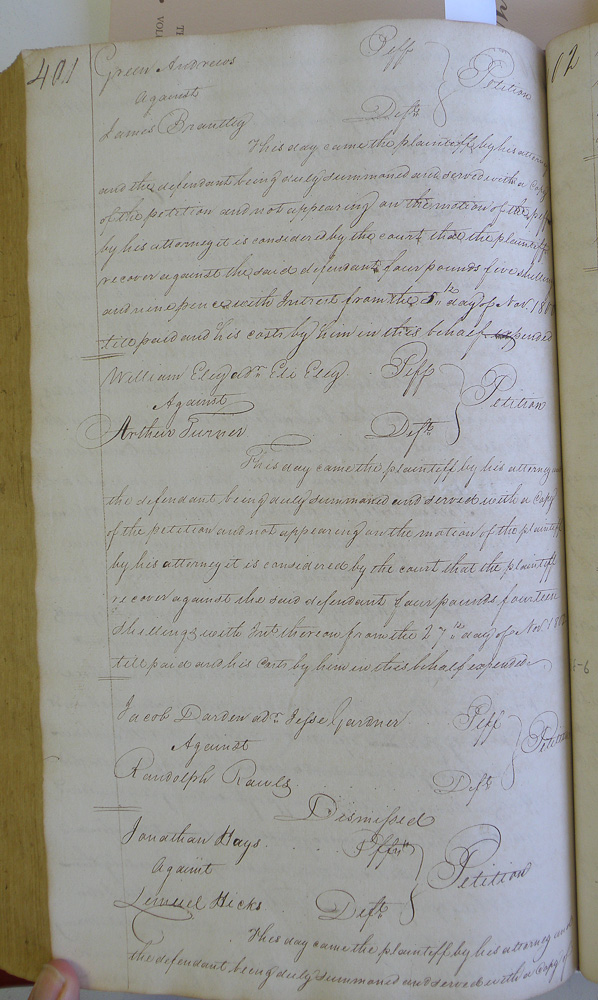 401
Green Andrews Plff
Against Petition
James Brantley Deft
This day came the plaintiff by his attorney
and the defendant being duly summoned and served with a copy
of the petition and not appearing on the motion of the plff
by his attorney it is considered by the court that the plaintiff
recover against the said defendant four pounds five shillings
and nine pence with Interest from the 5th day of Nov. 180
till paid and his costs by him in this behalf expended
William Eley adr. Eli Eley . Plff
Against Petition
Arthur Turner Deft
This day came the plaintiff by his attorney and
the defendant being duly summoned and served with a Copy
of the petition and not appearing on the motion of the plaintiff
by his attorney it is considered by the court that the plaintiff
recover against the said defendant four pounds fourteen
Shillings with Int. thereon from the 27th day of Nov. 180
till paid and his Costs by him in this behalf expended
Jacob Darden adr. Jesse Gardner . . Plff
Against Petition
Randolph Rawls . Deft
Dismissed
Jonathan Hays . . . . Plff
Against Petition
Lemuel Hicks . Deft
This day came the plaintiff by his attorney and
the defendant being duly summoned and served with a Copy of
02